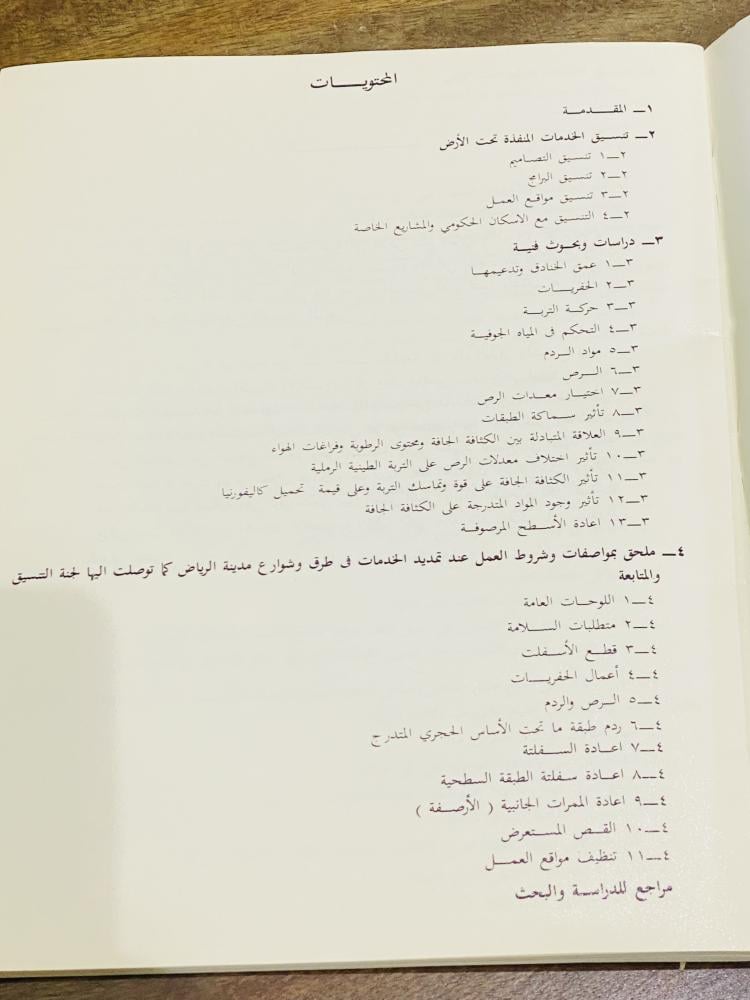 المحتويــــات
١ــ المقــدمــة
٢ــ تنسيق الخدمات المنفذة تحت الأرض
٢ــ١ تنسيق التصاميم
٢ــ٢ تنسيق البرامج
٢ــ٣ تنسيق مواقع العمل
٢ــ٤ التنسيق مع الاسكان الحكومي والمشاريع الخاصة
٣ــ دراسات وبحوث فنية
٣ــ١ عمق الخنادق وتدعيمها
٣ــ٢ الحفريــات
٣ــ٣ حركة التربة
٣ــ٤ التحكم فى المياه الجوفية
٣ــ٥ مواد الردم
٣ــ٦ الرص
٣ــ٧ اختيار معدات الرص
٣ــ٨ تأثير سماكة الطبقات
٣ــ٩ العلاقة المتبادلة بين الكثافة الجافة ومحتوى الرطوبة وفراغات الهواء
٣ــ١٠ تأثير اختلاف معدلات الرص على التربة الطينية الرملية
٣ــ١١ تأثير الكثافة الجافة على قوة وتماسك التربة وعلى قيمة تحميل كاليفورنيا
٣ــ١٢ تأثير وجود المواد المتدرجة على الكثافة الجافة
٣ــ١٣ اعادة الأسطح المرصوفة
٤ــ ملحق بمواصفات وشروط العمل عند تمديد الخدمات فى طرق وشوارع مدينة الرياض كما توصلت اليها لجنة التنسيق
والمتابعة
٤ــ١ اللوحات العامة
٤ــ٢ متطلبات السلامة
٤ــ٣ قطع الأسفلت
٤ــ٤ أعمال الحفريــات
٤ــ٥ الرص والردم
٤ــ٦ ردم طبقة ما تحت الأساس الحجري المتدرج
٤ــ٧ اعادة السفلتة
٤ــ٨ اعادة سفلتة الطبقة السطحية
٤ــ٩ اعادة الممرات الجانبية ( الأرصفة )
٤ــ١٠ القص المستعرض
٤ــ١١ تنظيف مواقع العمل
مراجع للدراسة والبحث